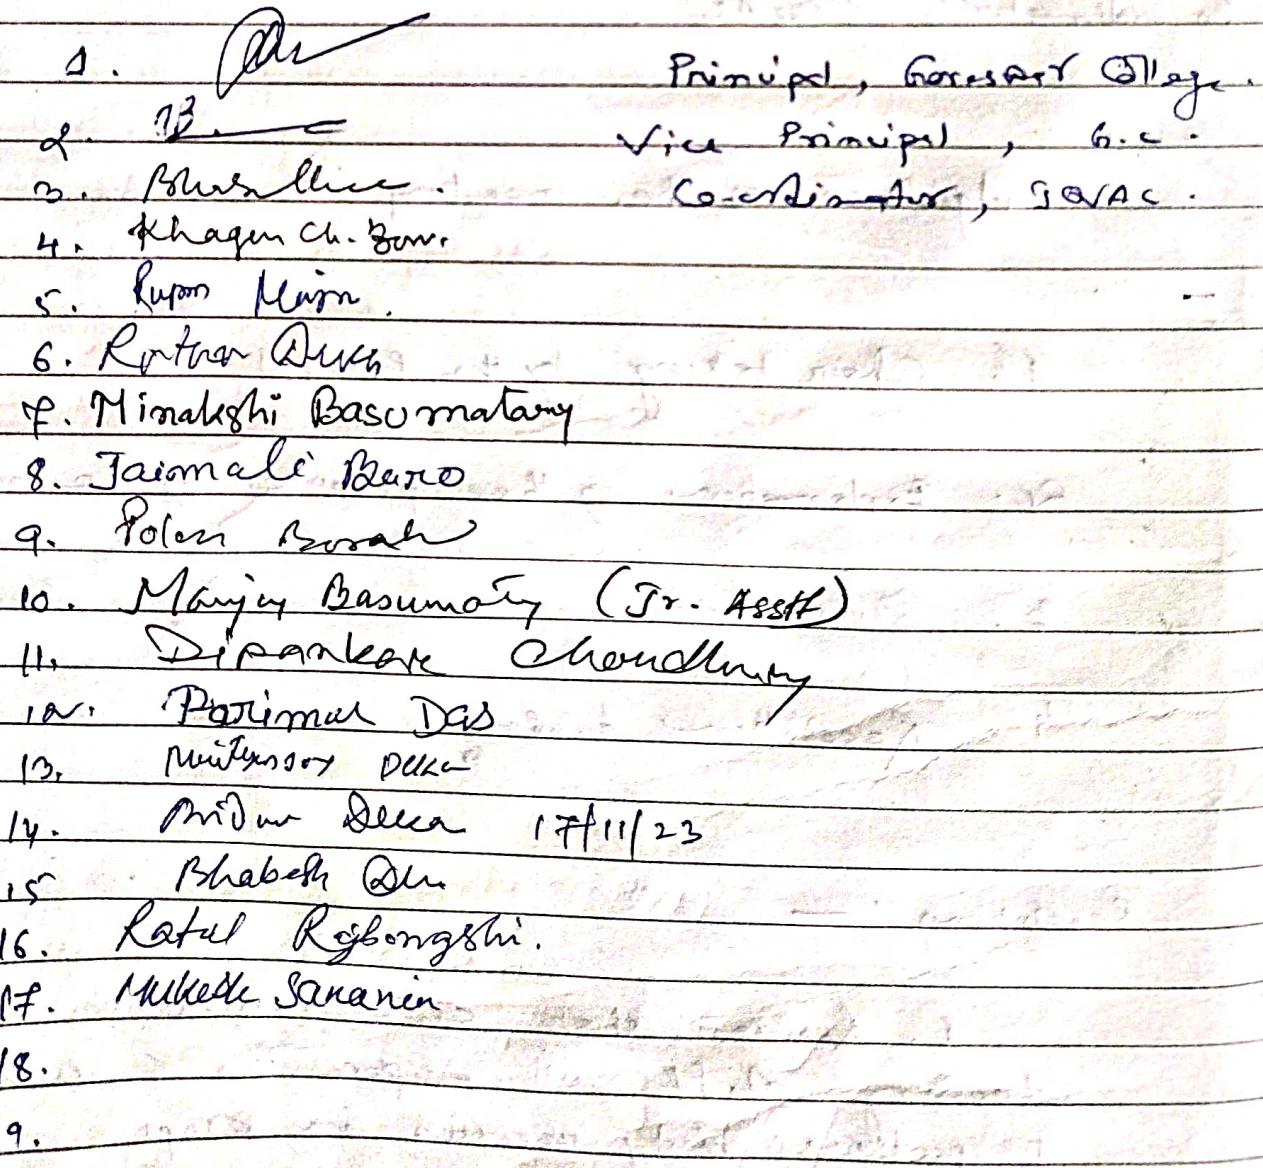 1. Principal, Goreswar College.
2. Vice Principal, G.C.
3. Co-ordinator, IQAC.
4. Khagen Ch.
5. Rupam
6. Ratna Deka
7. Minakshi Basumatary
8. Jaimali Baro
9. Polen Borah
10. Manju Basumatary (Jr. Asstt)
11. Dipankar Choudhury
12. Parimal Das
13. Deka
14. Deka 17/11/23
15 Bhabesh
16. Ratul Rajbongshi.
17. Mukesh Sarania
18.
9.